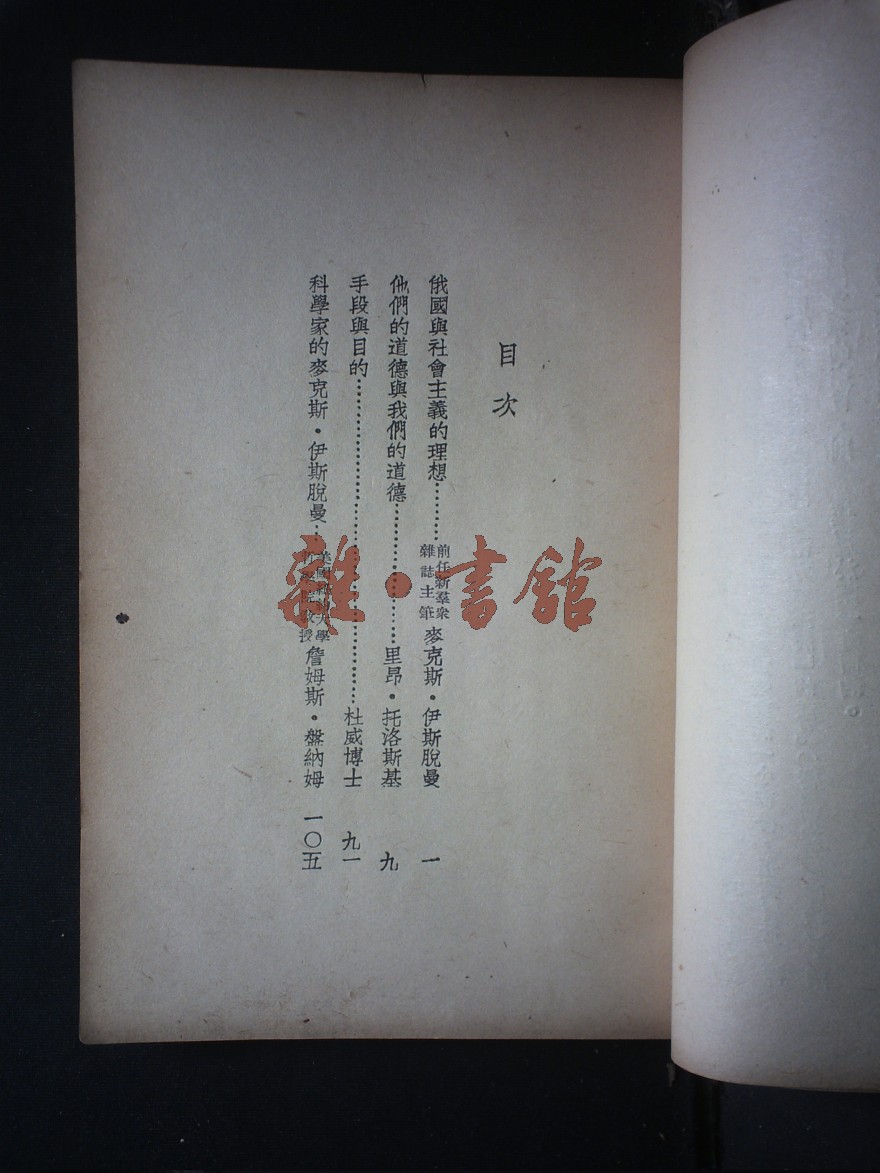 目次
俄國與社會主義的理想………前任新羣衆雜誌主筆 麥克斯·伊斯脫曼 一
他們的道德與我們的道德………里昂·托洛斯基 九
手段與目的………杜威博士 九一
科學家的麥克斯·伊斯脫曼…美國 大學 教授 詹姆斯·盤納姆 一〇五
雜·書館